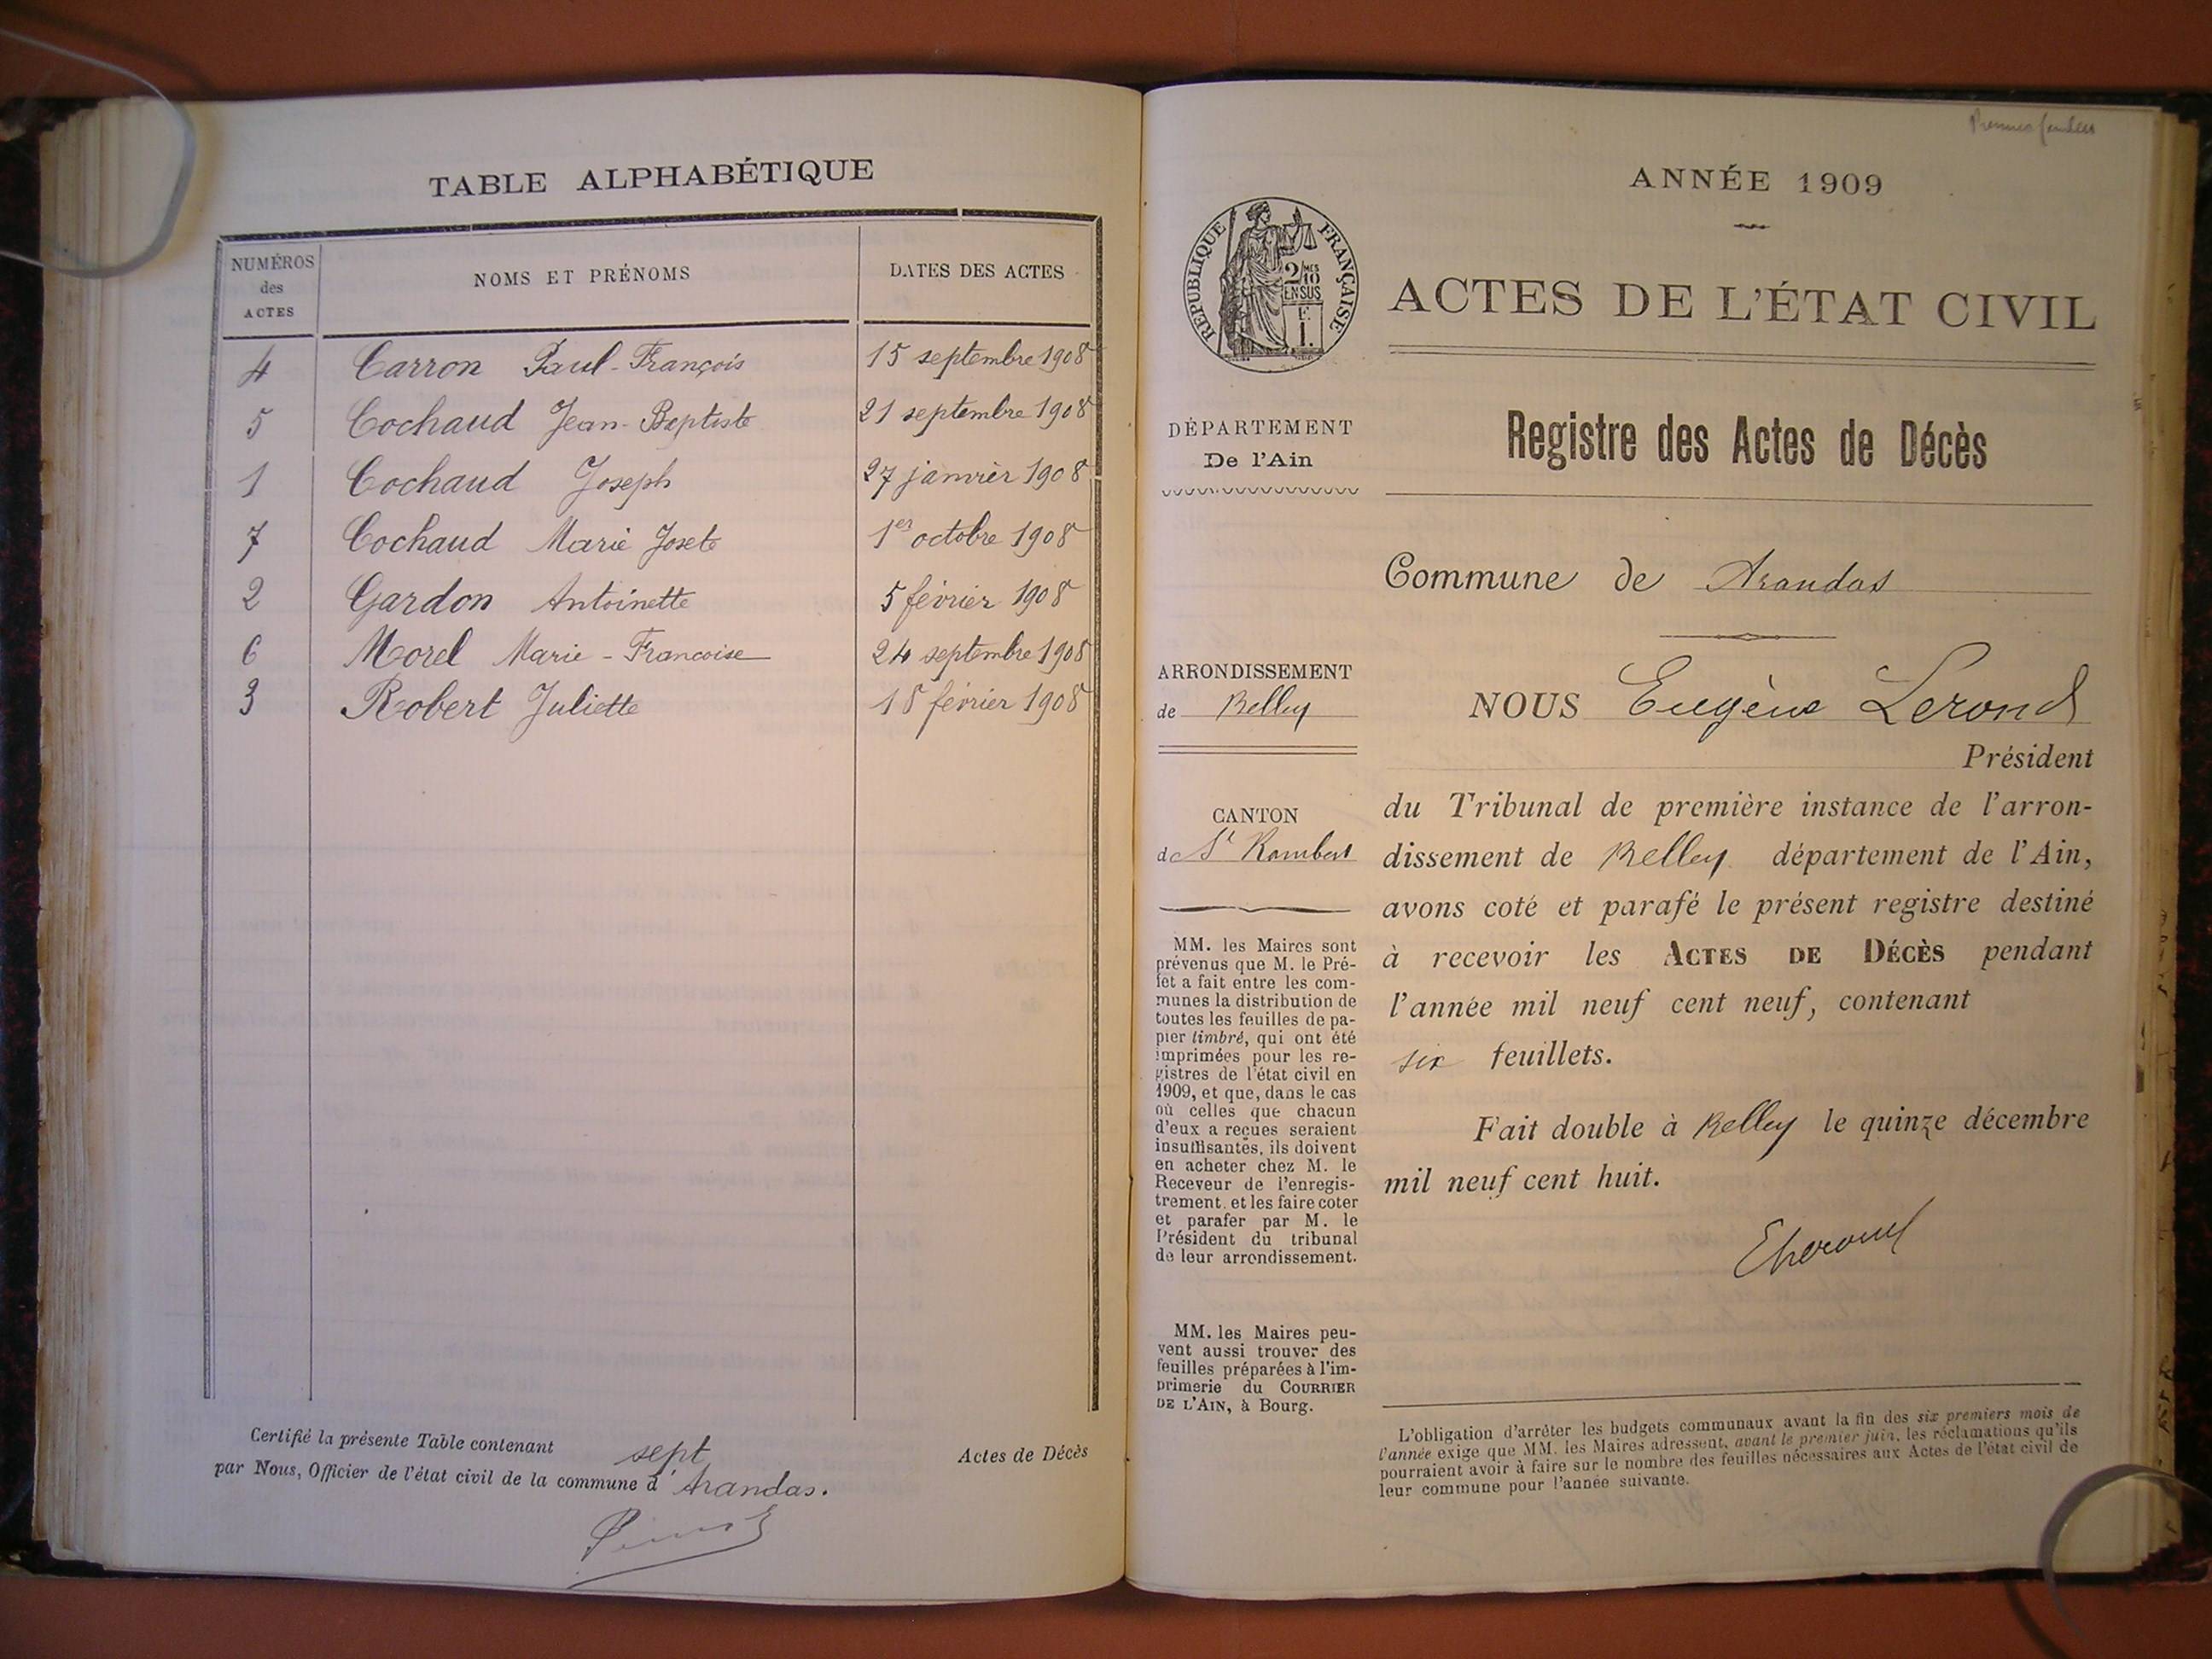 TABLE ALPHABÉTIQUE
NUMÉROS
des
ACTES
NOMS ET PRÉNOMS
DATES DES ACTES
4 Carron Paul-François 15 septembre 1908
5 Cochaud Jean-Baptiste 21 septembre 1908
1 Cochaud Joseph 27 janvier 1908
7 Cochaud Marie Josete 1er octobre 1908
2 Gardon Antoinette 5 février 1908
6 Morel Marie-Francoise 24 septembre 1908
3 Robert Juliette 18 février 1908
Certifié la présente Table contenant sept Actes de Décès
par Nous, Officier de l'état civil de la commune d'Arandas.
ANNÉE 1909
RÉPUBLIQUE FRANÇAISE
2/10MES
EN SUS
1F.
ACTES DE L'ÉTAT CIVIL
DÉPARTEMENT
De l'Ain
ARRONDISSEMENT
de Belley
CANTON
de St Rambert
MM. les Maires sont
prévenus que M. le Pré-
fet a fait entre les com-
munes la distribution de
toutes les feuilles de pa-
pier timbré, qui ont été
imprimées pour les re-
gistres de l'état civil en
1909, et que, dans le cas
où celles que chacun
d'eux a reçues seraient
insuffisantes, ils doivent
en acheter chez M. le
Receveur de l'enregis-
trement et les faire coter
et parafer par M. le
Président du tribunal
de leur arrondissement.
MM. les Maires peu-
vent aussi trouver des
feuilles préparées à l'im-
primerie du COURRIER
DE L'AIN, à Bourg.
Registre des Actes de Décès
Commune de Arandas
NOUS Eugène Lerond
Président
du Tribunal de première instance de l'arron-
dissement de Belley département de l'Ain,
avons coté et parafé le présent registre destiné
à recevoir les ACTES DE DÉCÈS pendant
l'année mil neuf cent neuf, contenant
six feuillets.
Fait double à Belley le quinze décembre
mil neuf cent huit.
L'obligation d'arrêter les budgets communaux avant la fin des six premiers mois de
l'année exige que MM. les Maires adressent, avant le premier juin, les réclamations qu'ils
pourraient avoir à faire sur le nombre des feuilles nécessaires aux Actes de l'état civil de
leur commune pour l'année suivante.